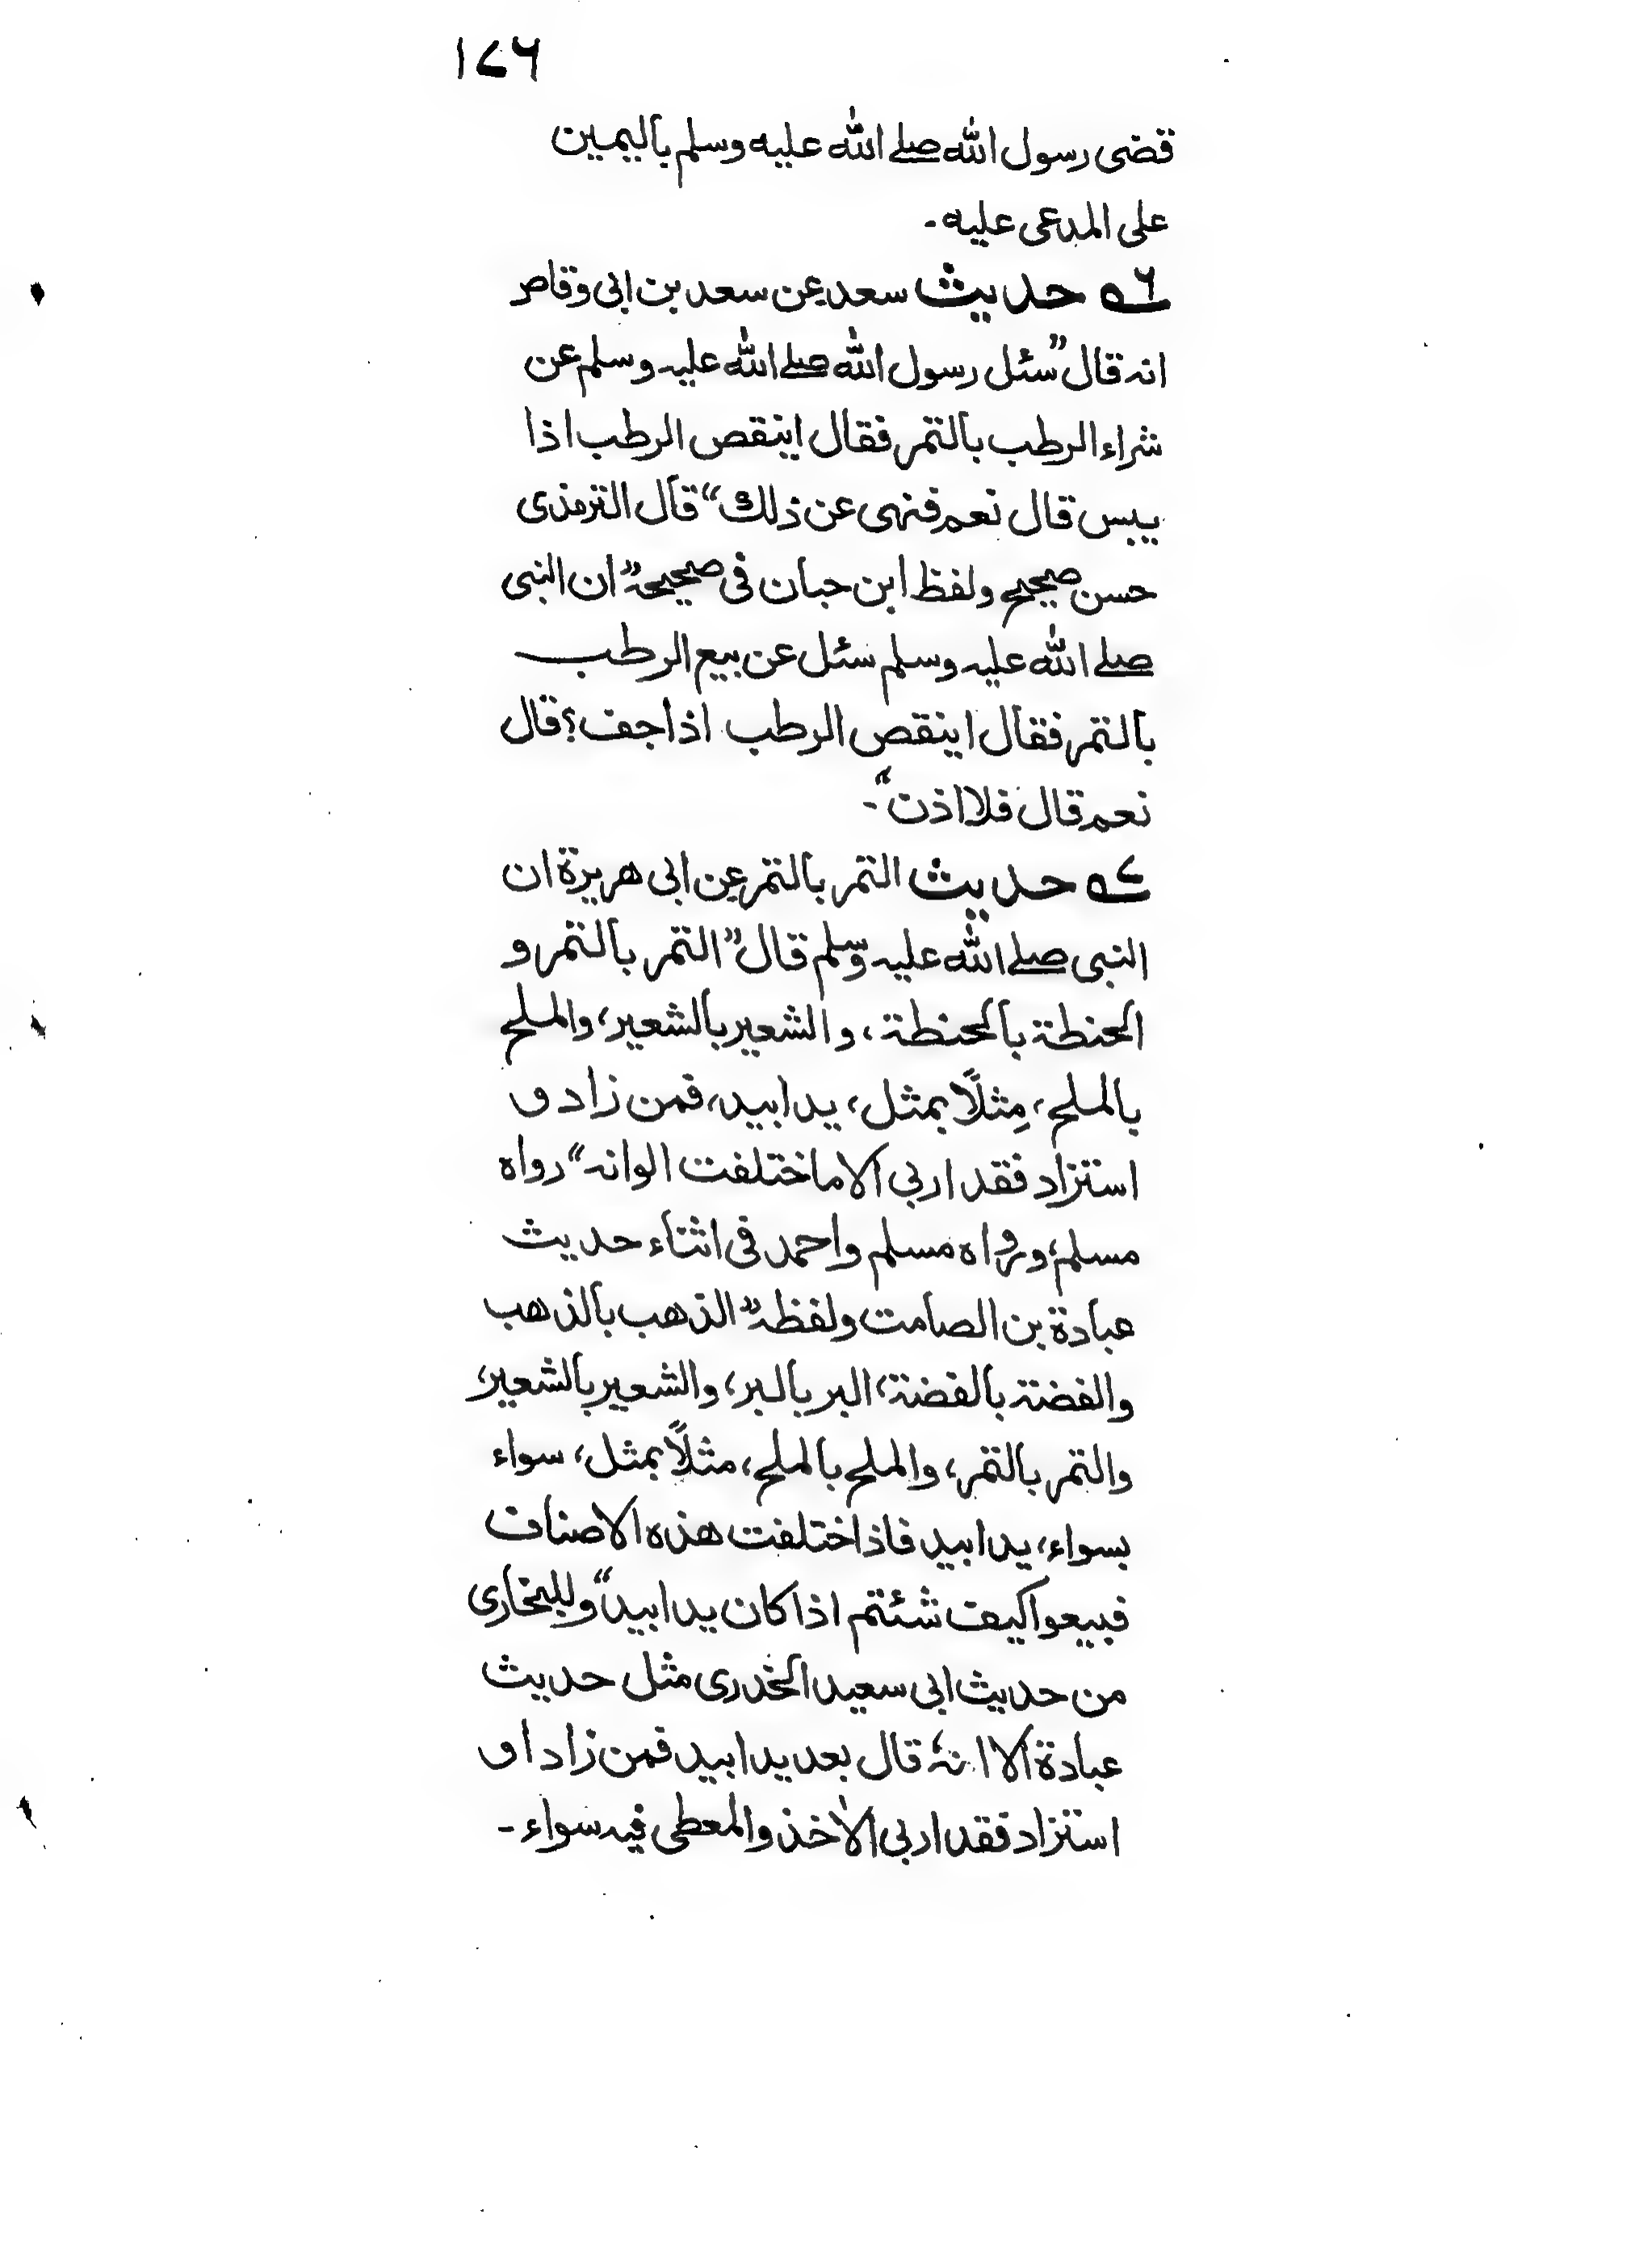 ۱۷۶
قضى رسول الله صلے الله عليه وسلم باليمين
على المدعى عليه ـ
۵۶ حديث سعد عن سعد بن ابى وقاص
انه قال ”سئل رسول الله صلے الله عليه وسلم عن
شراء الرطب بالتمر فقال اينقص الرطب اذا
يبس قال نعم فنهى عن ذلك“ قال الترمذى
حسن صحيح ولفظ ابن حبان فى صحيحه ”ان النبى
صلے الله عليه وسلم سئل عن بيع الرطب
بالتمر فقال اينقص الرطب اذا جف؟ قال
نعم قال فلا اذن“ـ
۵۷ حديث التمر بالتمر عن ابى هريرة ان
النبى صلے الله عليه وسلم قال ”التمر بالتمر و
الحنطة بالحنطة، والشعير بالشعير، والملح
بالملح، مِثلًا بمثل، يدا بيد، فمن زاد و
استزاد فقد اربى الا ما ختلفت الوانه“ رواه
مسلم، ورواه مسلم واحمد فى اثناء حديث
عبادة بن الصامت ولفظه ”الذهب بالذهب
والفضة بالفضة، البر بالبر، والشعير بالشعير،
والتمر بالتمر، والملح بالملح، مثلًا بمثل، سواء
بسواء، يدا بيد فاذا ختلفت هذه الاصناف
فبيعوا كيف شئتم اذا كان يدا بيد“ وللبخارى
من حديث ابى سعيد الخدرى مثل حديث
عبادة الا انهٗ قال بعد يدا بيد فمن زاد او
استزاد فقد اربى الاٰخذ والمعطى فيه سواء ـ